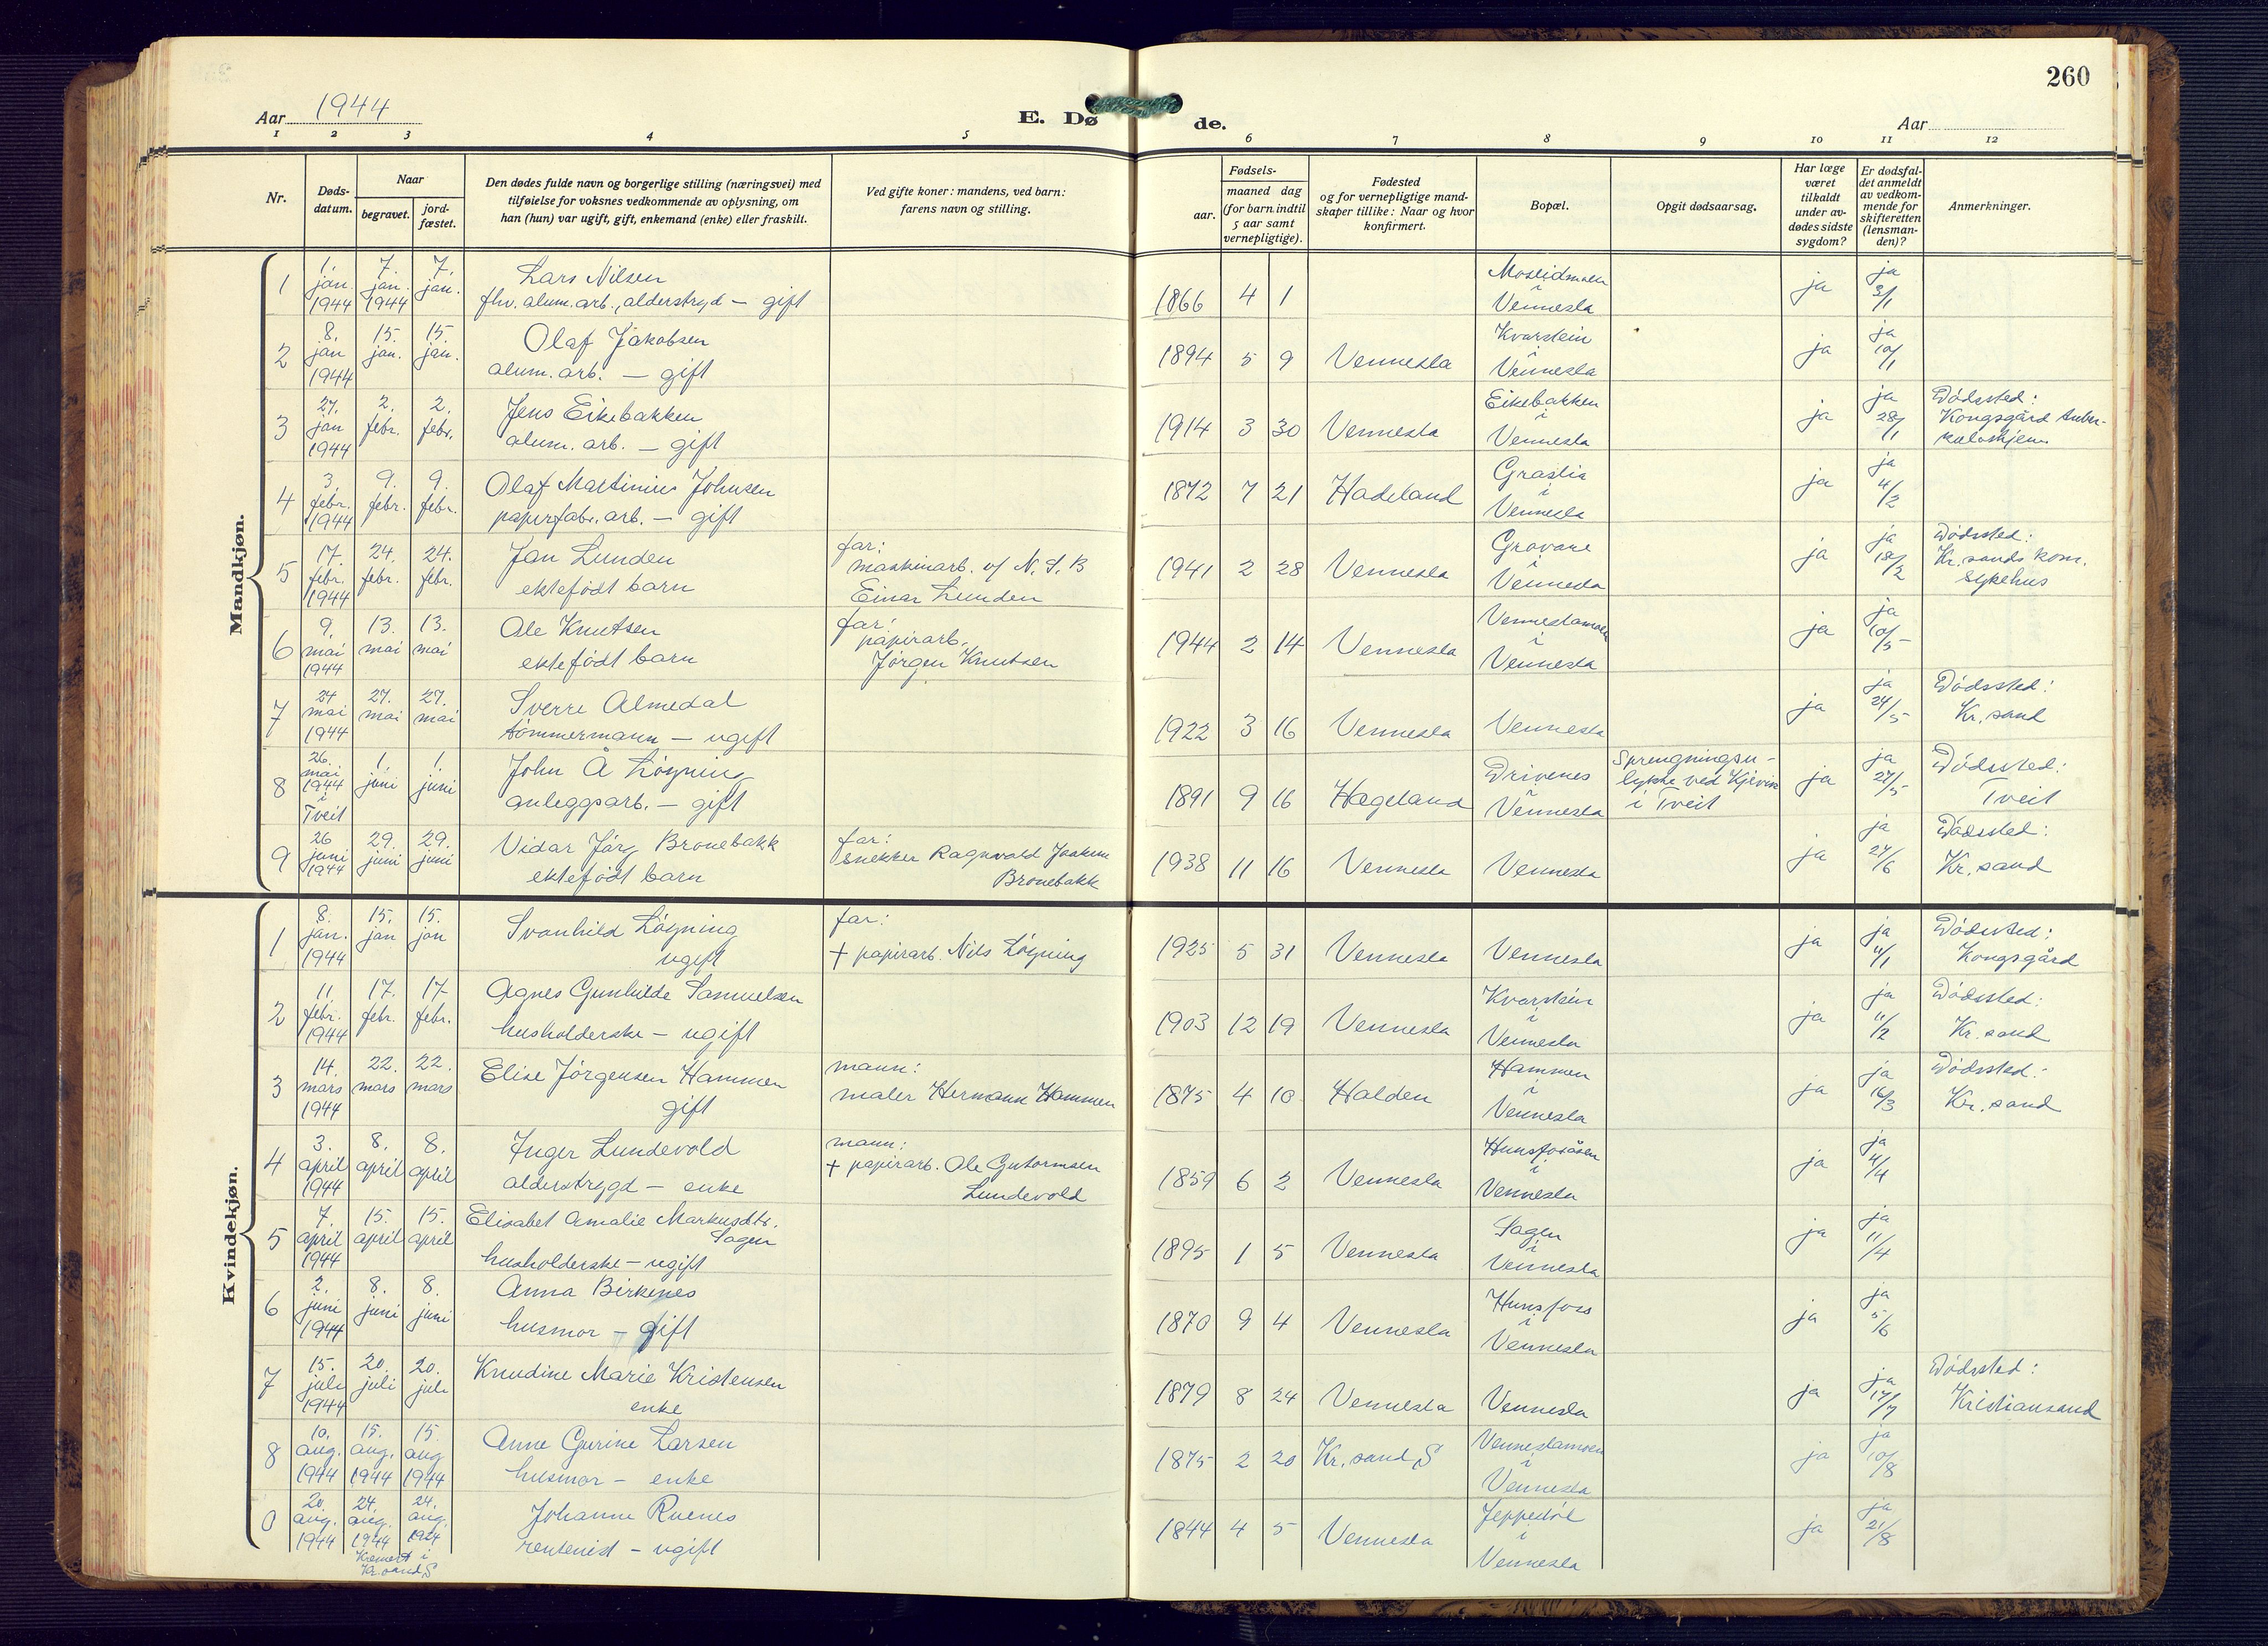 260
Aar 1944
E. Dø
de.
Aar
1 2 3 4 5 6 7 8 9 10 11 12
Nr.
Døds-
datum.
Naar
begravet.
jord-
fæstet.
Den dødes fulde navn og borgerlige stilling (næringsvei) med
tilføielse for voksnes vedkommende av oplysning, om
han (hun) var ugift, gift, enkemand (enke) eller fraskilt.
Ved gifte koner: mandens, ved barn:
farens navn og stilling.
Fødsels-
aar.
maaned dag
(for barn indtil
5 aar samt
vernepligtige).
Fødested
og for vernepligtige mand-
skaper tillike: Naar og hvor
konfirmert.
Bopæl.
Opgit dødsaarsag.
Har læge
været
tilkaldt
under av-
dødes sidste
sygdom?
Er dødsfal-
det anmeldt
av vedkom-
mende for
skifteretten
(lensman-
den)?
Anmerkninger.
Mandkjøn.
1 1. jan. 1944 7. jan. 1944 7. jan. Lars Nilsen
fhv. alum. arb., alderstrygd – gift
1866 4 1 Moseidmoen i Vennesla ja ja 3/1
2 8. jan 1944 15. jan. 15. jan. Olaf Jakobsen
alum. arb. – gift
1894 5 9 Vennesla Kvarstein i Vennesla ja ja 10/1
3 27. jan 1944 2. febr. 2. febr. Jens Eikebakken
alum. arb. – gift
1914 3 30 Vennesla Eikebakken i Vennesla ja ja 28/1 Dødssted:
Kongsgård tuber-
kuloshjem
4 3. febr. 1944 9. febr. 9. febr. Olaf Martinius Johnsen
papirfabr. arb. – gift
1872 7 21 Hadeland Graslia i Vennesla ja ja 4/2
5 17. febr. 1944 24. febr. 24. febr. Jan Lunden
ektefødt barn
far:
maskinarb. v/ N. S. B
Einar Lunden
1941 2 28 Vennesla Grovane i Vennesla ja ja 18/2 Dødssted:
Kr. sands kom.
sykehus
6 9. mai 1944 13. mai 13. mai Ole Knutsen
ektefødt barn
far:
papirarb.
Jørgen Knutsen
1944 2 14 Vennesla Venneslamoen i Vennesla ja ja 10/5
7 24 mai 1944 27. mai 27. mai Sverre Almedal
tømmermann – ugift
1922 3 16 Vennesla Vennesla ja ja 24/5 Dødssted:
Kr. sand
8 26. mai 1944 i Tveit 1. juni 1. juni John Å Løyning
anleggsarb. – gift
1891 9 16 Hægeland Drivenes i Vennesla Sprengningsu-
lykke ved Kjevik
i Tveit ja ja 27/5 Dødssted:
Tveit
9 26 juni 1944 29. juni 29. juni Vidar Jørg Bronebakk
ektefødt barn
far:
snekker Ragnvald Joakim
Bronebakk
1938 11 16 Vennesla Vennesla ja ja 27/6 Dødssted:
Kr. sand
Kvindekjøn.
1 8. jan. 1944 15. jan 15. jan Svanhild Løyning
ugift
far:
+ papirarb. Nils Løyning
1925 5 31 Vennesla Vennesla ja ja 11/1 Dødssted:
Kongsgård
2 11. febr. 1944 17. febr. 17. febr. Agnes Gunhilde Samuelsen
husholderske – ugift
1903 12 19 Vennesla Kvarstein i Vennesla ja ja 11/2 Dødssted:
Kr. sand
3 14. mars 1944 22. mars 22. mars Elise Jørgensen Hammen
gift
mann:
maler Hermann Hammen
1875 4 10 Halden Hammen i Vennesla ja ja 16/3 Dødssted:
Kr. sand
4 3. april 1944 8. april 8. april Inger Lundevold
alderstrygd – enke
mann:
+ papirarb. Ole Gutormsen
Lundevold
1859 6 2 Vennesla Hunsfosåsen i Vennesla ja ja 4/4
5 7. april 1944 15. april 15. april Elisabet Amalie Markusdtr.
Sagen
husholderske – ugift
1895 1 5 Vennesla Sagen i Vennesla ja ja 11/4
6 2. juni 1944 8. juni 8. juni Anna Birkenes
husmor – gift
1870 9 4 Vennesla Hunsfoss i Vennesla ja ja 5/6
7 15. juli 1944 20. juli 20. juli Knudine Marie Kristensen
enke
1879 8 24 Vennesla Vennesla ja ja 17/7 Dødssted:
Kristiansand
8 10. aug. 1944 15. aug. 1944 15. aug 1944 Anne Gurine Larsen
husmor – enke
1875 2 20 Kr. sand S Venneslamoen i Vennesla ja ja 10/8
20. aug. 1944 24. aug. 1944 24. aug. 1944 Johanne Ruenes
rentenist – ugift
1844 4 5 Vennesla Jeppestøl i Vennesla ja ja 21/8
Kremert i
Kr. sand S